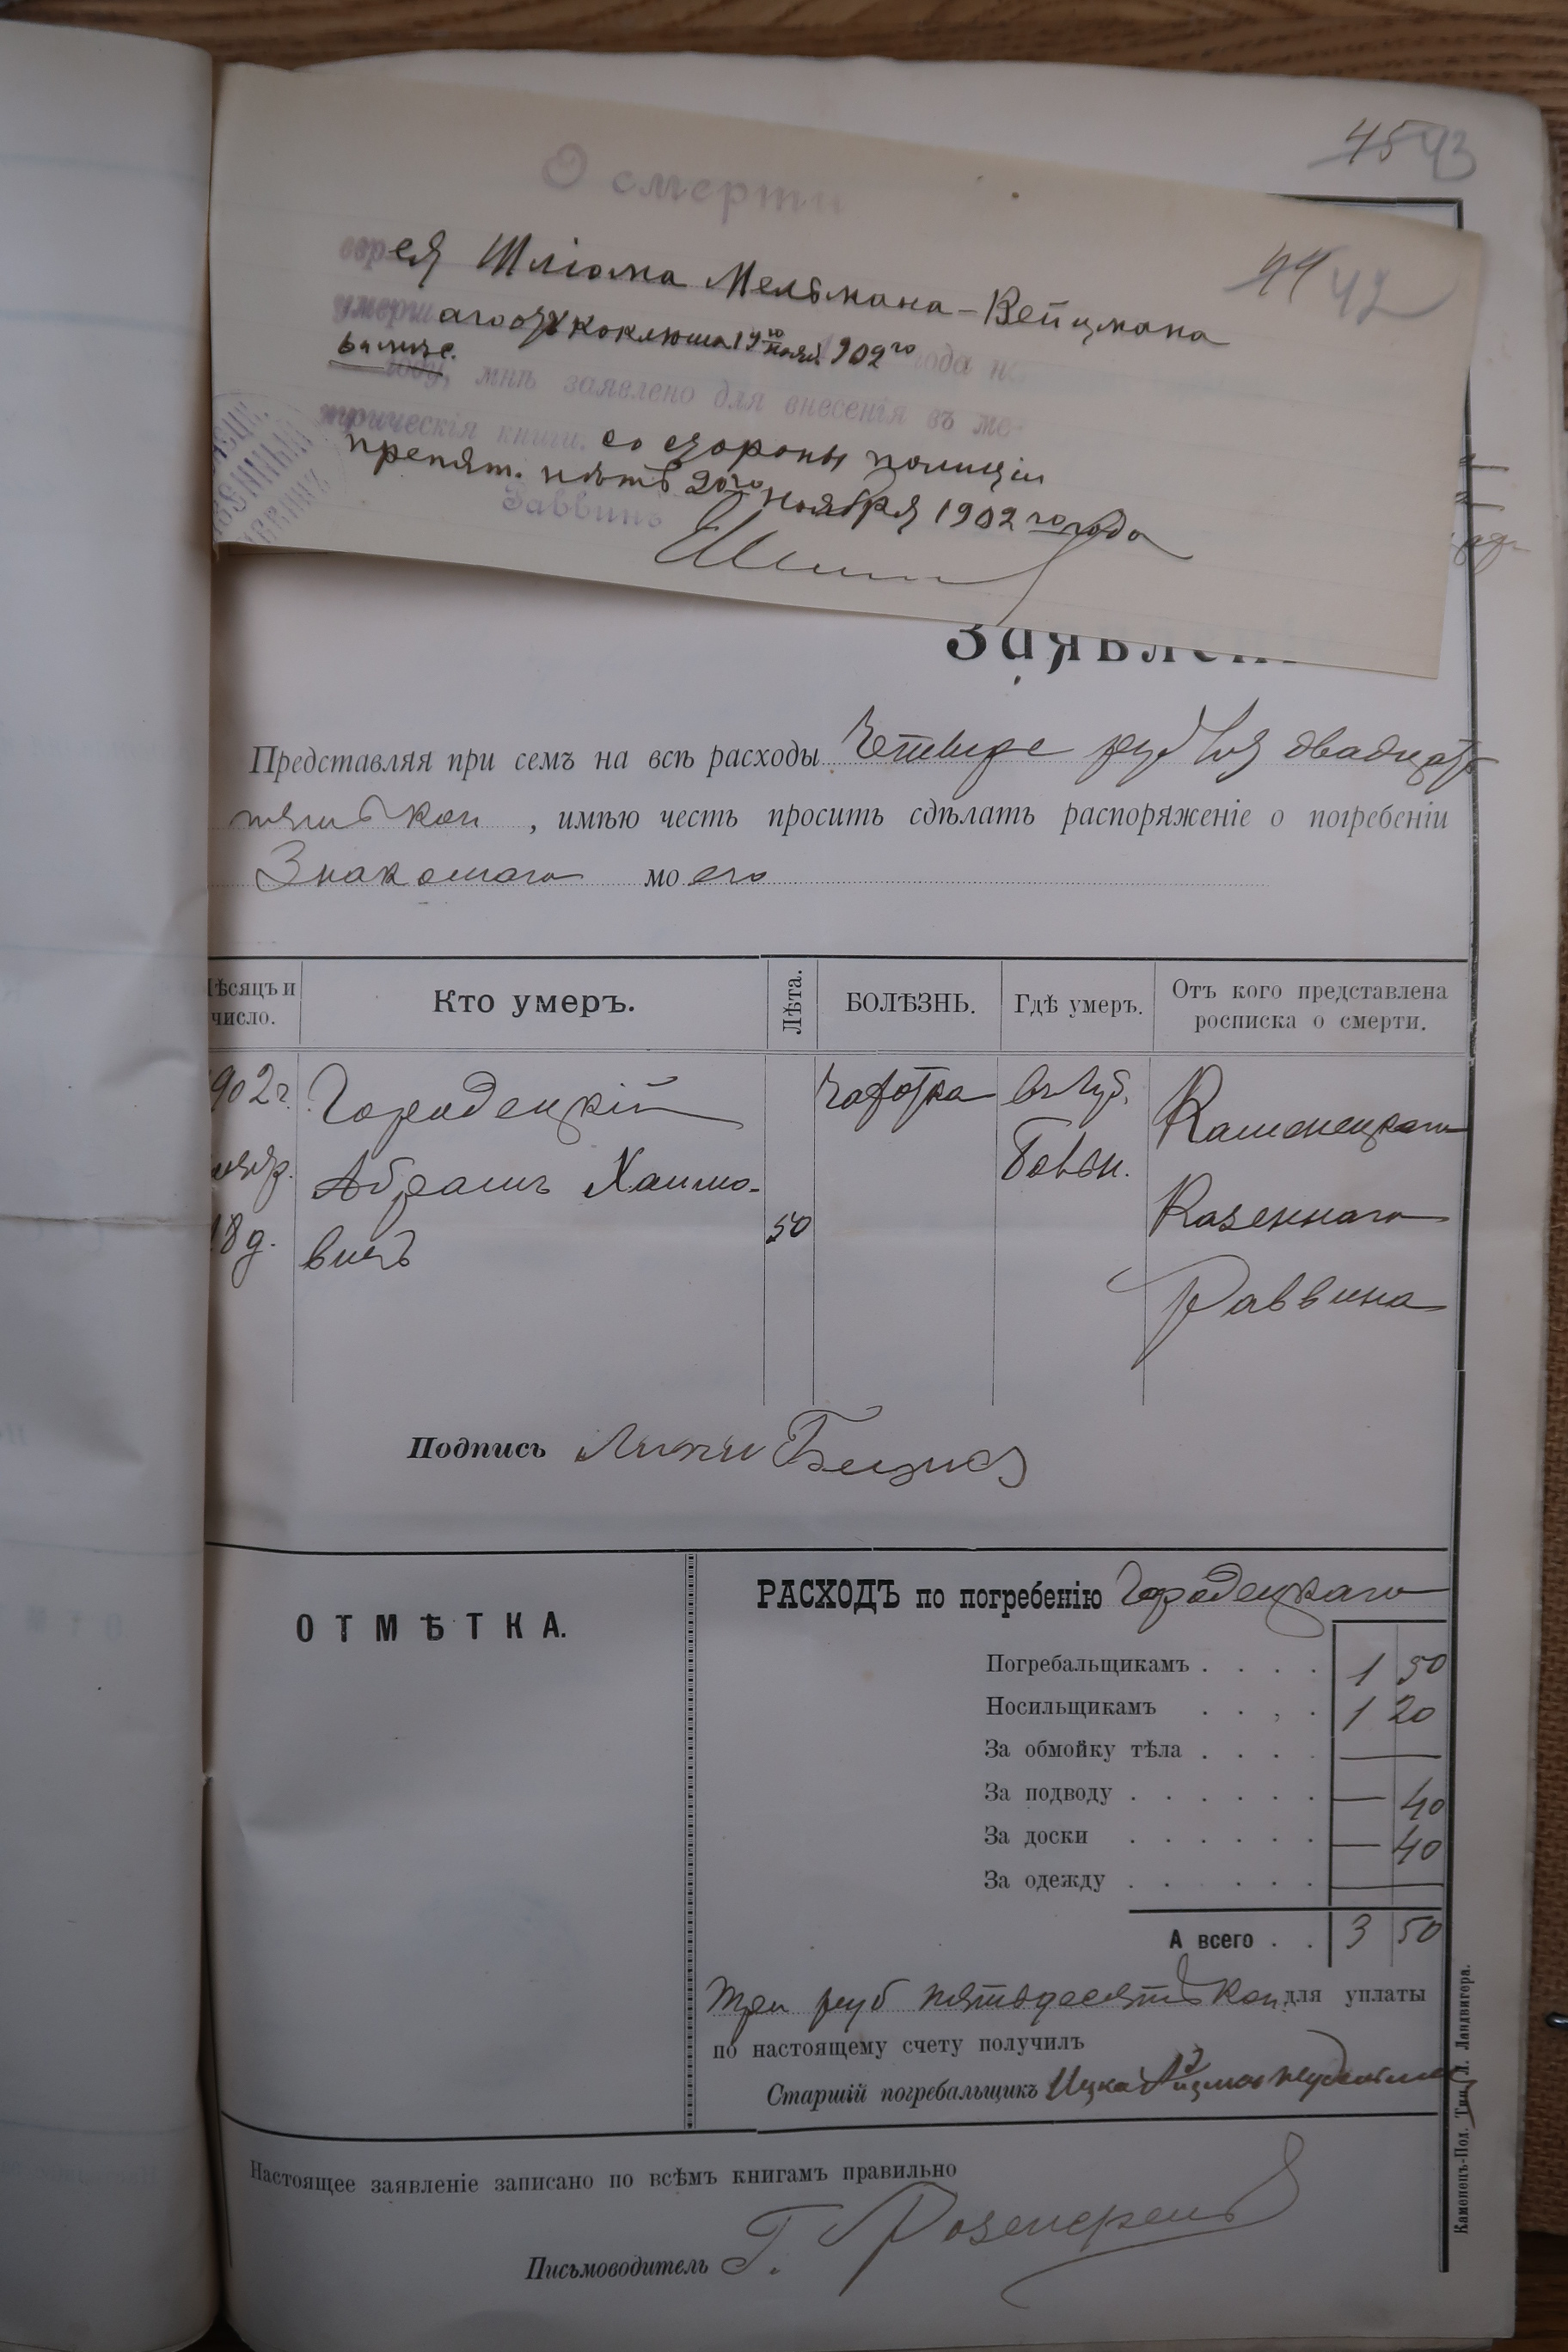 45 43
О смерти
еврея Шліома Мельмана-Вейцмана
44 42
умершаго отъ коклюша 19го ноября 1902го года на
году, мнѣ заявлено для внесенія въ ме-
трическія книги. со стороны полиціи
препят. нѣтъ 20го ноября 1902го года
Раввинъ
Заявленіе
Представляя при семъ на всѣ расходы четыре руб двадцать
пять коп , имѣю честь просить сдѣлать распоряженіе о погребеніи
Знакомаго моего
Мѣсяцъ и число. Кто умеръ. Лѣта. БОЛѢЗНЬ. Гдѣ умеръ. Отъ кого представлена росписка о смерти.
902г. Городецкій чахотка въ губ. Каменецкаго
Абрамъ Хаимо- Казеннаго
18 д. вичъ 50 Раввина
Подпись
ОТМѢТКА.
РАСХОДЪ по погребенію Городецкаго
Погребальщикамъ . . . . 1 50
Носильщикамъ . . . . 1 20
За обмойку тѣла . . . . —
За подводу . . . . . . — 40
За доски . . . . . . — 40
За одежду . . . . . . —
А всего . . 3 50
три руб пятьдесятъ коп. для уплаты
по настоящему счету получилъ
Старшій погребальщикъ Ицка
Настоящее заявленіе записано по всѣмъ книгамъ правильно
Письмоводитель Г.
Каменецъ-Под. Тип. Л. Ландвигера.